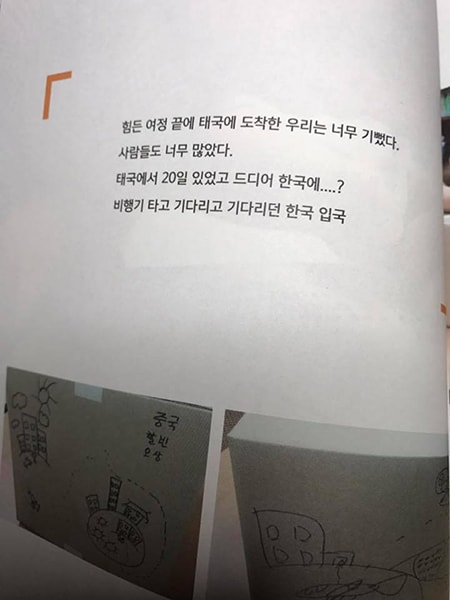 힘든 여정 끝에 태국에 도착한 우리는 너무 기뻤다.
사람들도 너무 많았다.
태국에서 20일 있었고 드디어 한국에....?
비행기 타고 기다리고 기다리던 한국 입국
중국